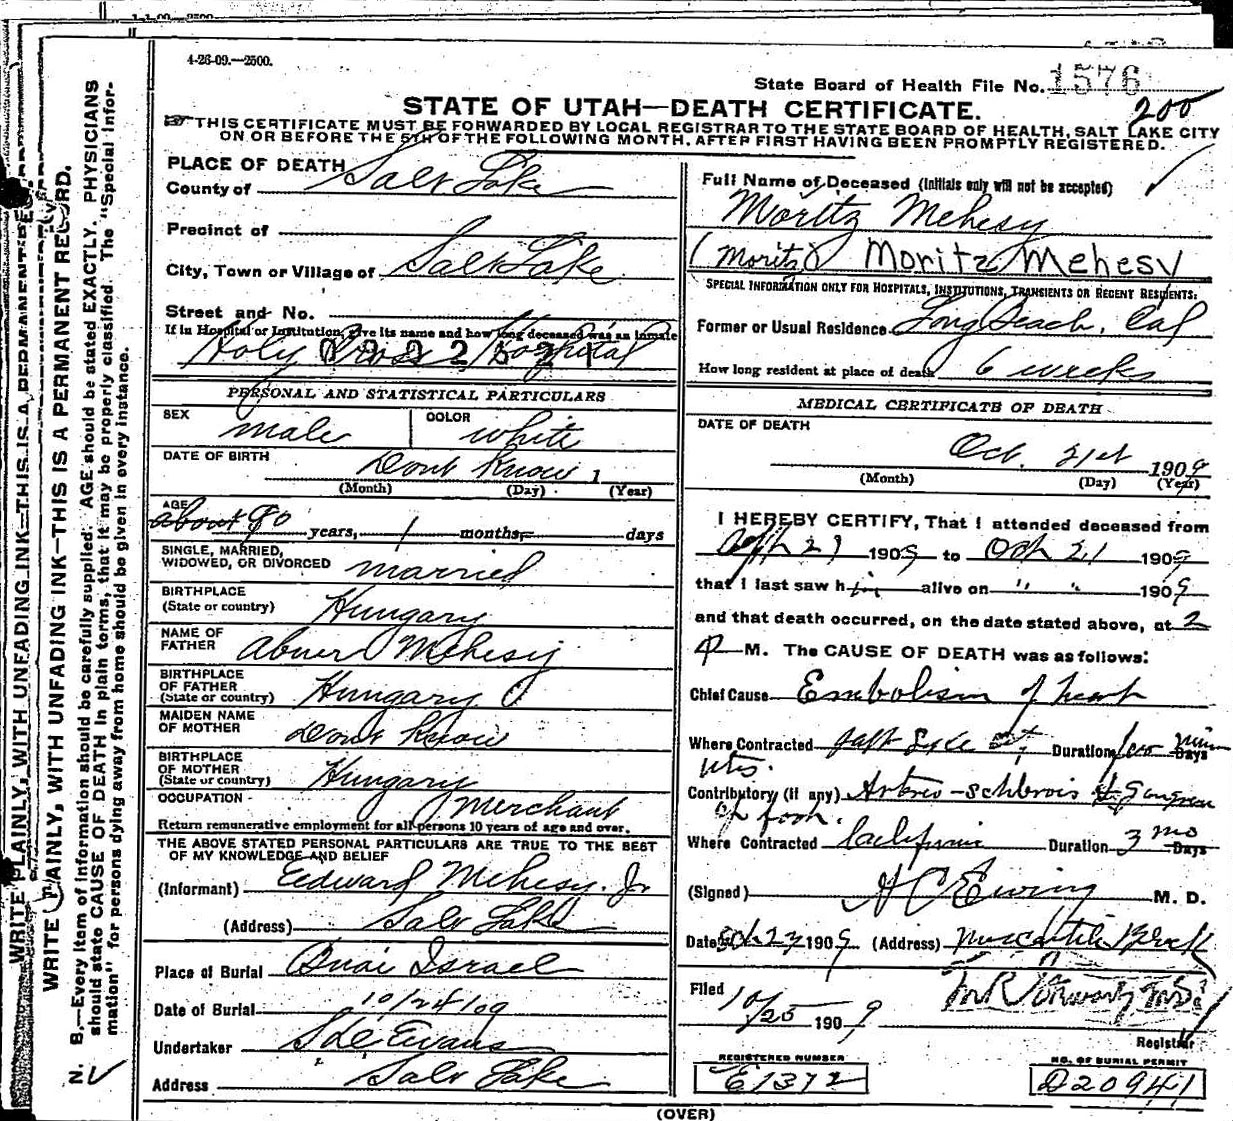 4-26-09.—2500.
State Board of Health File No. 1576
200
STATE OF UTAH—DEATH CERTIFICATE.
THIS CERTIFICATE MUST BE FORWARDED BY LOCAL REGISTRAR TO THE STATE BOARD OF HEALTH, SALT LAKE CITY
ON OR BEFORE THE 5TH OF THE FOLLOWING MONTH, AFTER FIRST HAVING BEEN PROMPTLY REGISTERED.
WRITE PLAINLY, WITH UNFADING INK—THIS IS A PERMANENT RECORD.
N. B.—Every item of information should be carefully supplied. AGE should be stated EXACTLY. PHYSICIANS
should state CAUSE OF DEATH in plain terms, that it may be properly classified. The "Special Infor-
mation" for persons dying away from home should be given in every instance.
PLACE OF DEATH
County of Salt Lake
Precinct of
City, Town or Village of Salt Lake
Street and No.
If in Hospital or Institution, give its name and how long deceased was an inmate
Holy Cross Hospital
PERSONAL AND STATISTICAL PARTICULARS
SEX male COLOR white
DATE OF BIRTH Dont Know 1
(Month) (Day) (Year)
AGE about 90 years, months, days
SINGLE, MARRIED,
WIDOWED, OR DIVORCED married
BIRTHPLACE
(State or country) Hungary
NAME OF
FATHER Abner Mehesy
BIRTHPLACE
OF FATHER
(State or country) Hungary
MAIDEN NAME
OF MOTHER Dont Know
BIRTHPLACE
OF MOTHER
(State or country) Hungary
OCCUPATION Merchant
Return remunerative employment for all persons 10 years of age and over.
THE ABOVE STATED PERSONAL PARTICULARS ARE TRUE TO THE BEST
OF MY KNOWLEDGE AND BELIEF
(Informant) Edward Mehesy. Jr
(Address) Salt Lake
Place of Burial Bnai Israel
Date of Burial 10/24/09
Undertaker S D Evans
Address Salt Lake
Full Name of Deceased (Initials only will not be accepted)
Moritz Mehesy
(Moritz) Moritz Mehesy
SPECIAL INFORMATION ONLY FOR HOSPITALS, INSTITUTIONS, TRANSIENTS OR RECENT RESIDENTS:
Former or Usual Residence Long Beach, Cal
How long resident at place of death 6 weeks
MEDICAL CERTIFICATE OF DEATH
DATE OF DEATH
Oct. 21st 1909
(Month) (Day) (Year)
I HEREBY CERTIFY, That I attended deceased from
1909 to Oct 21 1909
that I last saw him alive on " " 1909
and that death occurred, on the date stated above, at 2
P M. The CAUSE OF DEATH was as follows:
Chief Cause Embolism of heart
Where Contracted Salt Lake Duration
Contributory (if any) Arterio-schlerosis & Gangrene
of foot.
Where Contracted California Duration 3 mo Days
(Signed) H C Ewing M. D.
Date Oct 23 1909 (Address) Mercantile Block
Filed 10/25 1909
Registrar
REGISTERED NUMBER
E1372
NO. OF BURIAL PERMIT
D20941
(OVER)